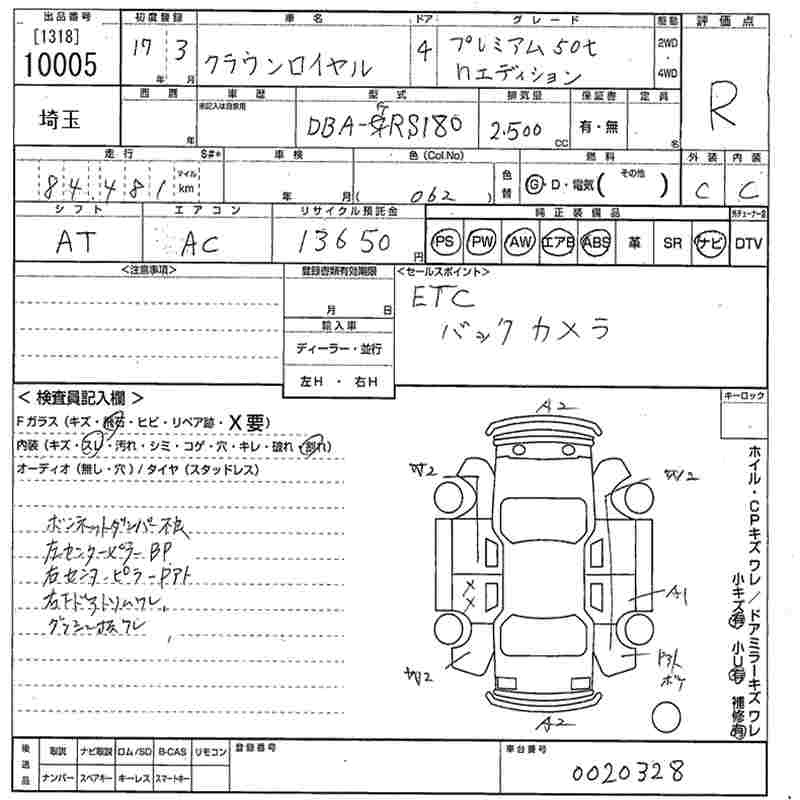 出品番号 初度登録 車名 ドア グレード 駆動 評価点
[1318] 10005
17年 3月
クラウンロイヤル
4
プレミアム50t
nエディション
2WD・4WD
R
埼玉
西暦 車歴 型式 排気量 保証書 定員
年
未記入は自家用
DBA-GRS180
2.500 CC
有・無
名
走行 S#* 車検 色(Col.No) 色替 燃料 外装 内装
84.481 マイル km
年 月
(062)
G・D・電気(その他)
C C
シフト エアコン リサイクル預託金 純正装備品
AT AC 13650円
PS PW AW エアB ABS 革 SR ナビ DTV
<注意事項> 登録書類有効期限 <セールスポイント>
月 日
輸入車
ディーラー・並行
左H・右H
ETC
バックカメラ
<検査員記入欄>
Fガラス(キズ・飛石・ヒビ・リペア跡・X要)
内装(キズ・スレ・汚れ・シミ・コゲ・穴・キレ・破れ・割れ)
オーディオ(無し・穴)/タイヤ(スタッドレス)
ボンネットダンパー不良
左センターピラーBP
左センターピラーPアト
右下ドアトリムワレ
キーロック
A2
W2
W2
XX
A1
W2
Pアト
ボケ
A2
ホイル・CPキズワレ/ドアミラーキズワレ
小キズ有 小U有 補修有
後送品 取説 ナビ取説 ロム/SD B-CAS リモコン 登録番号 車台番号
ナンバー スペアキー キーレス スマートキー
0020328